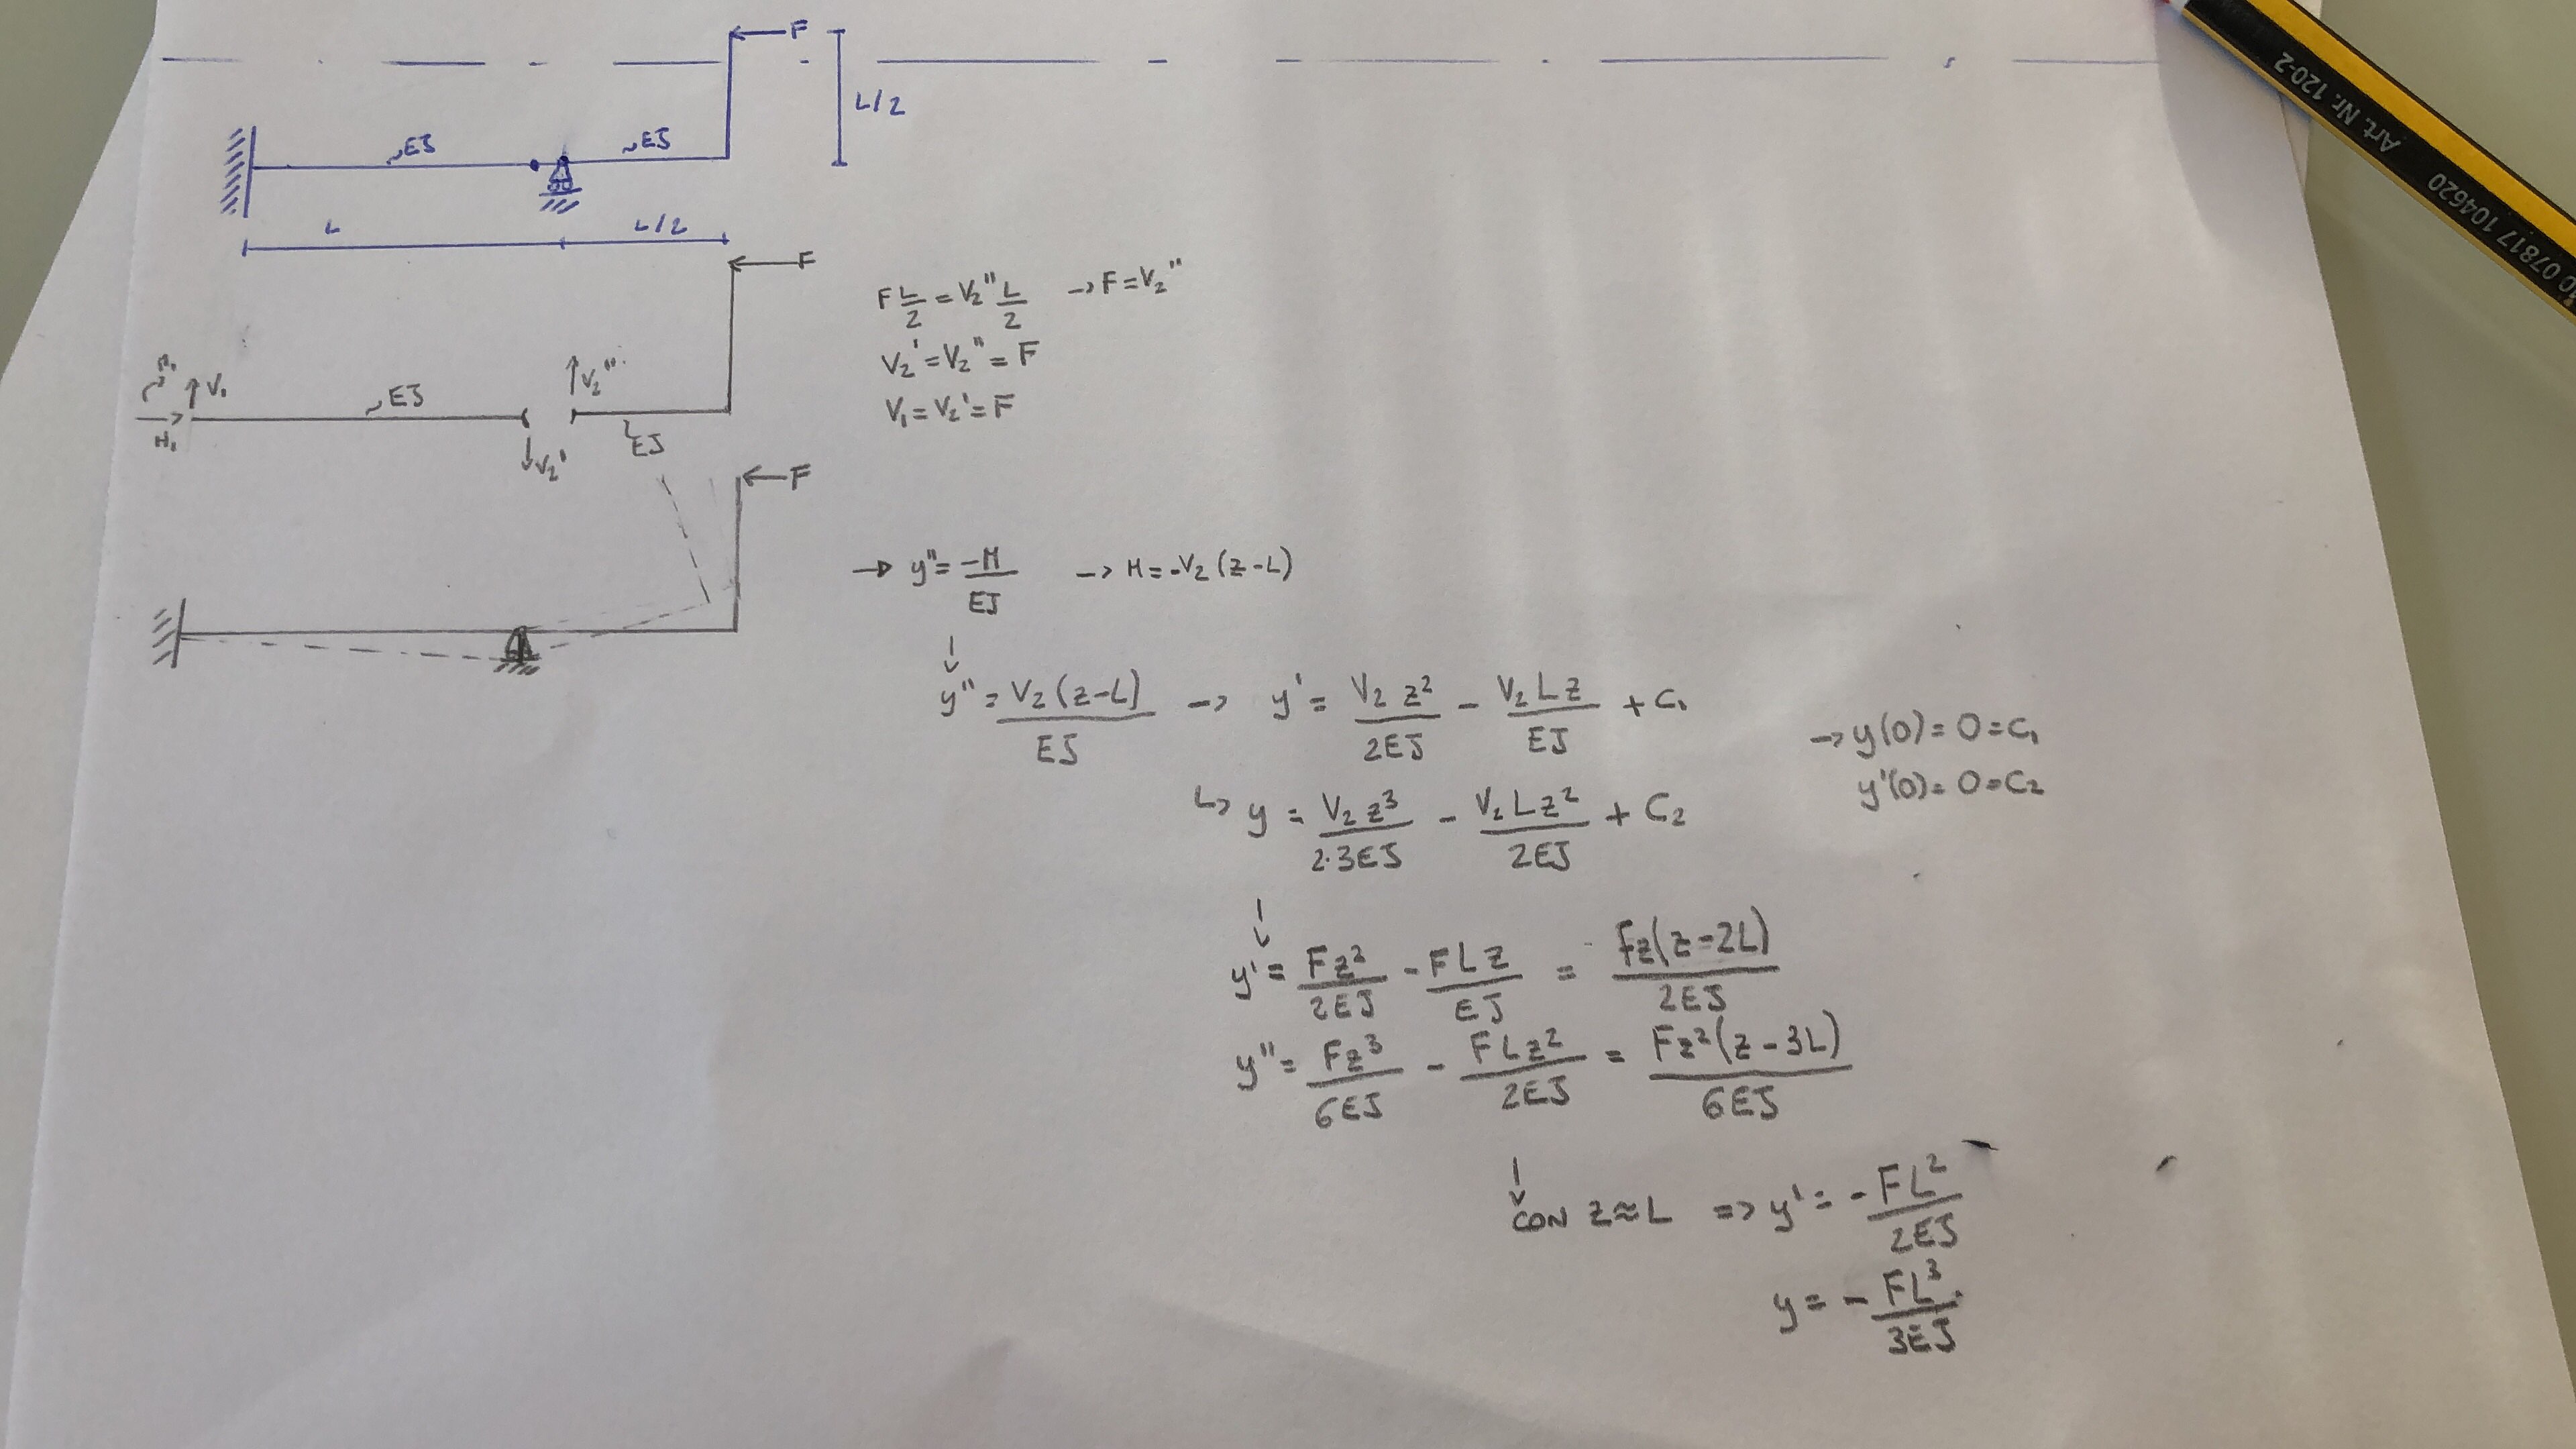 F
L/2
~EJ
~EJ
L
L/2
F
F L/2 = V₂'' L/2 → F = V₂''
V₂' = V₂'' = F
V₁ = V₂' = F
V₁
H₁
~EJ
V₂''
V₂'
EJ
F
→ y'' = -M/EJ → M = -V₂(z-L)
y'' = V₂(z-L)/EJ → y' = V₂z²/2EJ - V₂Lz/EJ + C₁
→ y(0) = 0 = C₁
y'(0) = 0 = C₂
↳ y = V₂z³/2·3EJ - V₂Lz²/2EJ + C₂
y' = Fz²/2EJ - FLz/EJ = Fz(z-2L)/2EJ
y'' = Fz³/6EJ - FLz²/2EJ = Fz²(z-3L)/6EJ
CON z≈L => y' = -FL²/2EJ
y = -FL³/3EJ
Art. Nr. 120-2
07817 104620